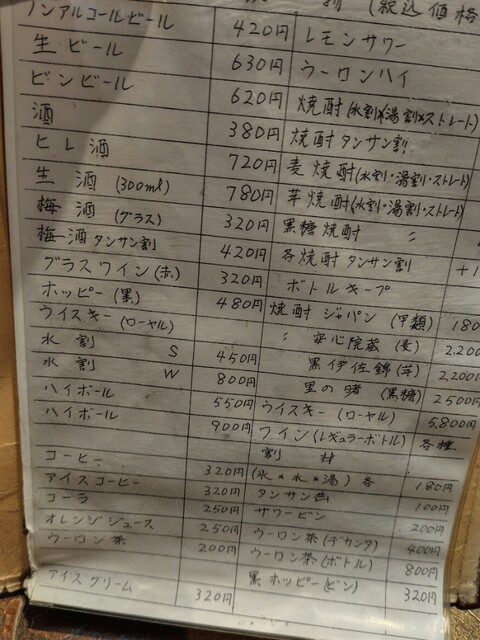 ノンアルコールビール 420円
生ビール 630円
ビンビール 620円
酒 380円
ヒレ酒 720円
生酒(300ml) 780円
梅酒(グラス) 320円
梅酒タンサン割 420円
グラスワイン(赤) 320円
ホッピー(黒) 480円
ウイスキー(ローヤル)
水割 S 450円
水割 W 800円
ハイボール 550円
ハイボール 900円
コーヒー 320円
アイスコーヒー 320円
コーラ 250円
オレンジジュース 250円
ウーロン茶 200円
アイスクリーム 320円
割 (税込価格
レモンサワー
ウーロンハイ
焼酎(水割×湯割×ストレート)
焼酎タンサン割
麦焼酎(水割・湯割・ストレート)
芋焼酎(水割・湯割・ストレート)
黒糖焼酎 〃
各焼酎タンサン割 +1
ボトルキープ
焼酎ジャパン(甲類) 180
〃 安心院蔵(麦) 2.200
黒伊佐錦(芋) 2,200円
里の曙(黒糖) 2500円
ウイスキー(ローヤル) 5.800円
ワイン(レギュラーボトル) 各種
割材
(氷×水×湯)各 180円
タンサン 100円
サワービン 200円
ウーロン茶(デカンタ) 400円
ウーロン茶(ボトル) 800円
黒ホッピー(ビン) 320円